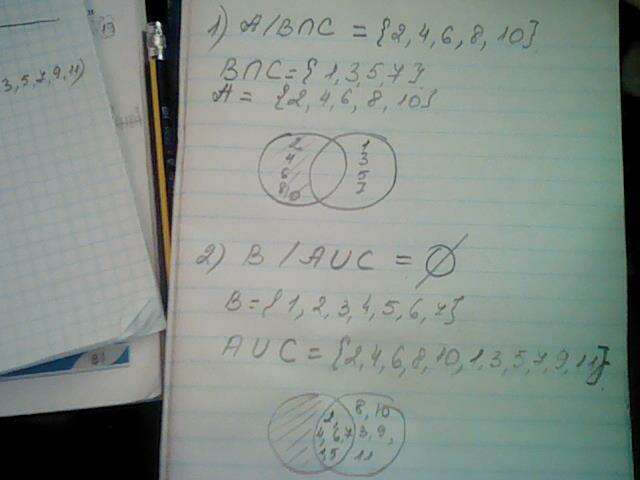 19
3, 5, 7, 9, 11)
1) A/B∩C = {2, 4, 6, 8, 10}
B∩C = {1, 3, 5, 7}
A = {2, 4, 6, 8, 10}
2 1
4 3
6 5
8 10 7
2) B / A∪C = ∅
B = {1, 2, 3, 4, 5, 6, 7}
A∪C = {2, 4, 6, 8, 10, 1, 3, 5, 7, 9, 11}
2, 8, 10
4, 6, 7 3, 9,
3 5 11